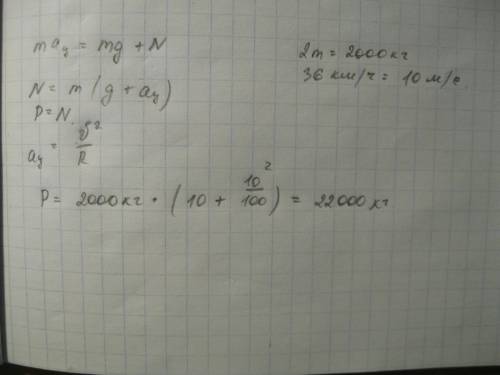 ma_y = mg + N
2m = 2000кг
36 км/ч = 10 м/с
N = m (g + a_y)
P = N.
a_y = υ²/R
P = 2000кг · (10 + 10²/100) = 22000кг